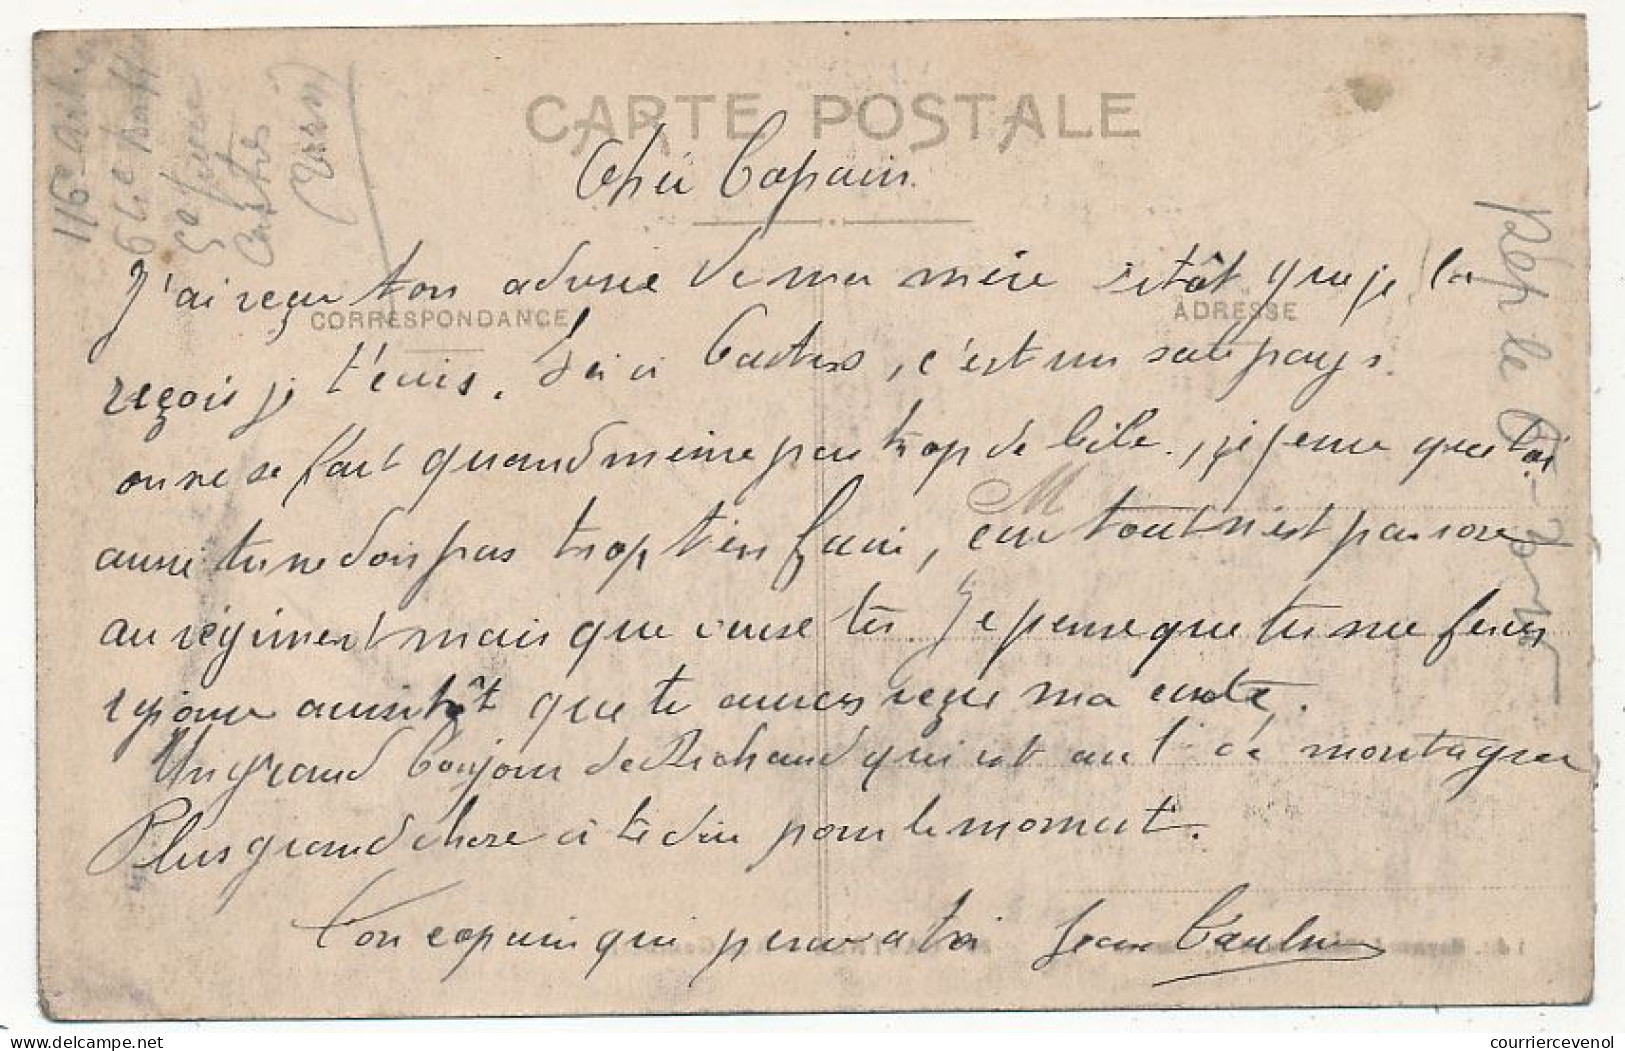 CARTE POSTALE
Cher Copain.
J'ai reçu ton adresse de ma mère sitôt que je la
CORRESPONDANCE
ADRESSE
reçois je t'écris. Ici a Castres, c'est un sale pays.
on ne se fait quand meme pas trop de bile, je pense que toi
aussi tu ne dois pas trop t'en faire, car tout n'est pas rose
au régiment mais que veux tu. Je pense que tu me feras
reponse aussitôt que tu auras reçue ma carte.
Un grand bonjour de Richaud qui est au
Plus grand chose a te dire pour le moment.
Ton copain qui pense a toi Jean
116e
6te
5e
Castres
(Tarn)
Rep le
courriercevenol.com